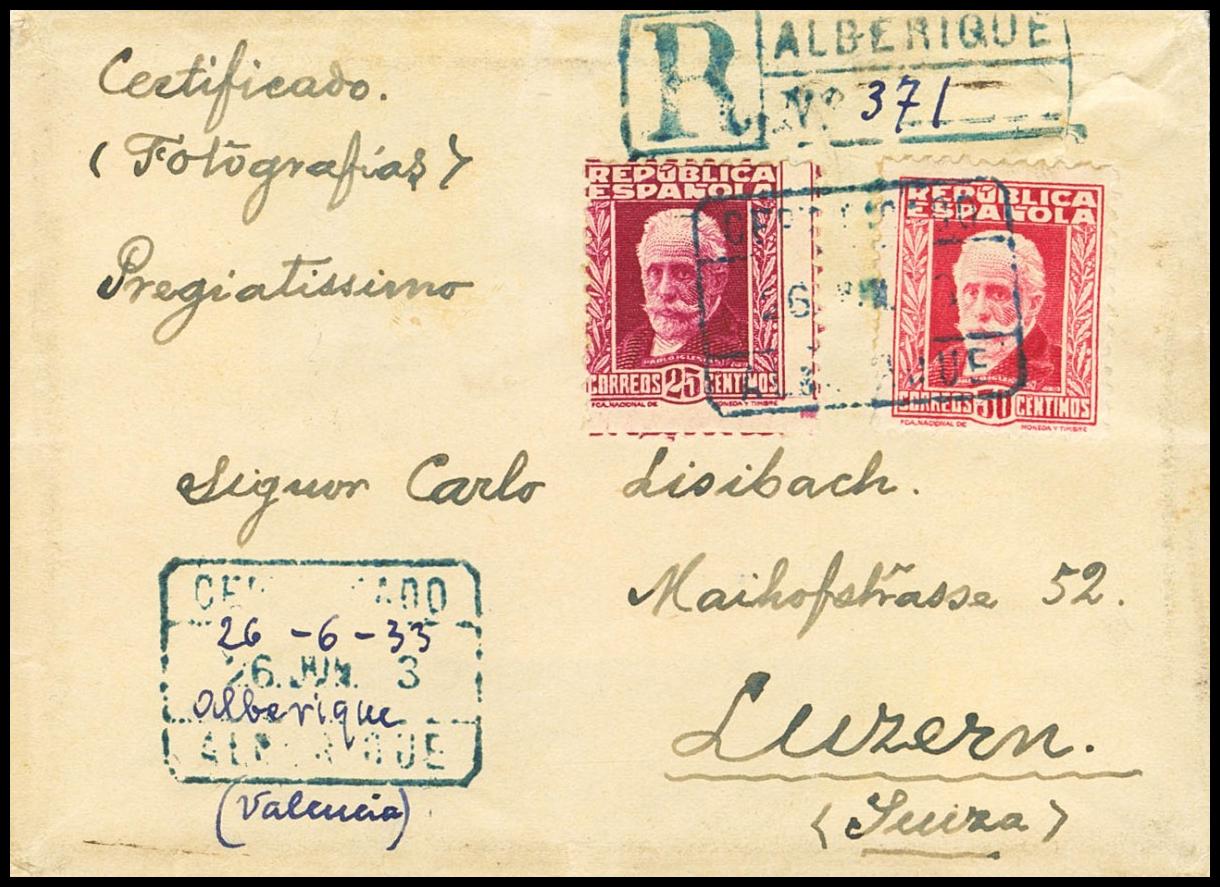 Certificado.
(Fotografías)
Pregiatissimo
R ALBERIQUE
Nº 371
REPÚBLICA
ESPAÑOLA
PABLO IGLESIAS
CORREOS 25 CENTIMOS
FCA. NACIONAL DE MONEDA Y TIMBRE
REPÚBLICA
ESPAÑOLA
CORREOS 30 CENTIMOS
FCA. NACIONAL DE MONEDA Y TIMBRE
26
Signor Carlo Lisibach.
Maihofstrasse 52.
Luzern.
(Suiza)
26-6-33
26 JUN. 3
Alberique
(Valencia)